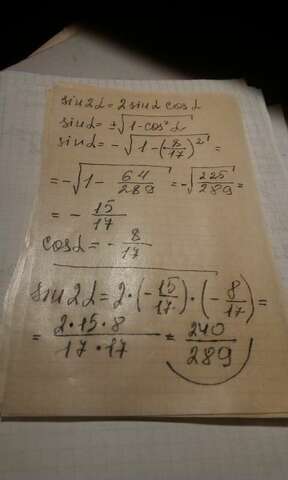 sin2α = 2 sinα cosα
sinα = ±√(1 - cos²α)
sinα = -√(1 - (-8/17)²) =
= -√(1 - 64/289) = -√(225/289) =
= - 15/17
cosα = - 8/17
sin2α = 2·(-15/17)·(-8/17) =
= 2·15·8/17·17 = 240/289